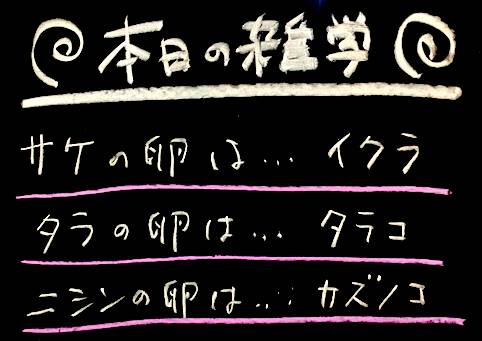 本日の雑学
サケの卵は… イクラ
タラの卵は… タラコ
ニシンの卵は… カズノコ